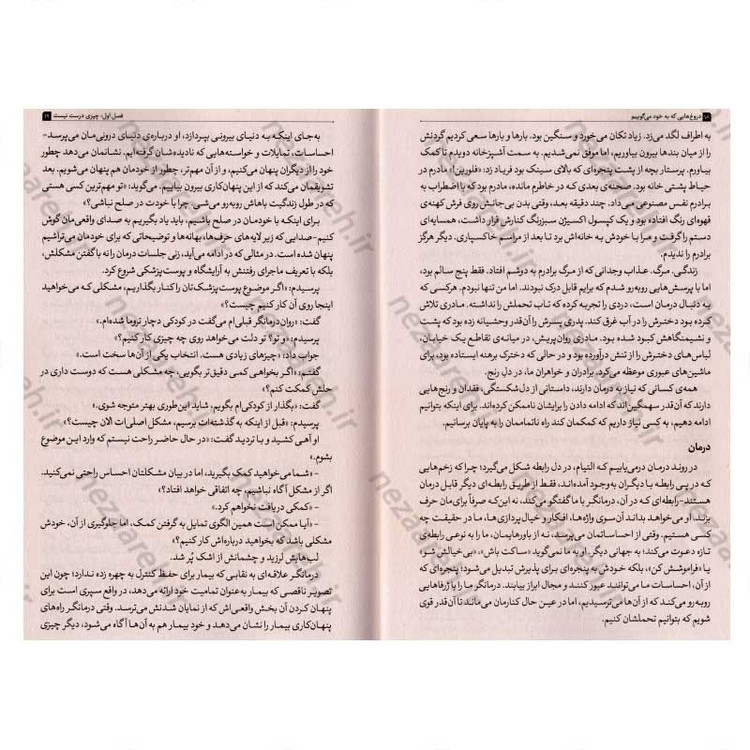 ۱۸ دروغ‌هایی که به خود می‌گوییم
به اطراف لگد می‌زد. زیاد تکان می‌خورد و سنگین بود. بارها و بارها سعی کردیم گردنش
را از میان بندها بیرون بیاوریم، اما موفق نمی‌شدیم. به سمت آشپزخانه دویدم تا کمک
بیاورم. پرستار بچه از پشت پنجره‌ای که بالای سینک بود فریاد زد: «فلورین!» مادرم در
حیاط پشتی خانه بود. صحنه‌ی بعدی که در خاطرم مانده، مادرم بود که با اضطراب به
برادرم نفس مصنوعی می‌داد. چند دقیقه بعد، وقتی بدن بی‌جانش روی فرش کهنه‌ی
قهوه‌ای رنگ افتاده بود و یک کپسول اکسیژن سبزرنگ کنارش قرار داشت، همسایه‌ای
دستم را گرفت و مرا با خودش به خانه‌اش برد تا بعد از مراسم خاکسپاری. دیگر هرگز
برادرم را ندیدم.
زندگی. مرگ. عذاب وجدانی که از مرگ برادرم به دوشم افتاد. فقط پنج سالم بود،
اما با پرسش‌هایی روبه‌رو شدم که برایم قابل درک نبودند. اما من تنها نبودم. هرکسی که
به دنبال درمان است، دردی را تجربه کرده که تاب تحملش را نداشته. مادری تلاش
کرده بود دخترش را در آب غرق کند. پدری پسرش را آن‌قدر وحشیانه زده بود که پشت
و نشیمنگاهش کبود شده بود. مادری روان‌پریش، در میانه‌ی تقاطع یک خیابان،
لباس‌های دخترش را از تنش درآورده بود و در حالی که دخترک برهنه ایستاده بود، برای
ماشین‌های عبوری موعظه می‌کرد. برادران و خواهران ما، در دل رنج.
همه‌ی کسانی که نیاز به درمان دارند، داستانی از دل‌شکستگی، فقدان و رنج‌هایی
دارند که آن‌قدر سهمگین‌اند که ادامه دادن را برایشان ناممکن کرده‌اند. برای اینکه بتوانیم
ادامه دهیم، به کسی نیاز داریم که کمکمان کند راه ناتماممان را به پایان برسانیم.
درمان
در روند درمان درمی‌یابیم که التیام، در دل رابطه شکل می‌گیرد؛ چرا که زخم‌هایی
که در پی رابطه با دیگران به‌وجود آمده‌اند، فقط از طریق رابطه‌ای دیگر قابل درمان
هستند-رابطه‌ای که در آن، درمانگر با ما گفتگو می‌کند، نه این‌که صرفاً برای‌مان حرف
بزند. او می‌خواهد بداند آن‌سوی واژه‌ها، افکار و خیال‌پردازی‌ها، ما در حقیقت چه
کسی هستیم. وقتی از احساساتمان می‌پرسد، نه از باورهایمان، ما را به نوعی رابطه‌ی
تازه دعوت می‌کند؛ به جهانی دیگر. او به ما نمی‌گوید «ساکت باش»، «بی‌خیالش شو»
یا «فراموشش کن»، بلکه خودش به پنجره‌ای برای پذیرش تبدیل می‌شود؛ پنجره‌ای که
از آن، احساسات ما می‌توانند عبور کنند و مجال ابراز بیابند. درمانگر ما را با ژرفاهایی
روبه‌رو می‌کند که از آن‌ها می‌ترسیدیم، اما در عین حال کنارمان می‌ماند تا آن‌قدر قوی
شویم که بتوانیم تحملشان کنیم.
فصل اول: چیزی درست نیست ۱۹
به‌جای اینکه به دنیای بیرونی بپردازد، او درباره‌ی دنیای درونی‌مان می‌پرسد-
احساسات، تمایلات و خواسته‌هایی که نادیده‌شان گرفته‌ایم. نشانمان می‌دهد چطور
خود را از دیگران پنهان می‌کنیم، و از آن مهم‌تر، چطور از خودمان هم پنهان می‌شویم. بعد
تشویقمان می‌کند که از این پنهان‌کاری بیرون بیاییم. می‌گوید: «تو مهم‌ترین کسی هستی
که در طول زندگیت باهاش روبه‌رو می‌شی. چرا با خودت در صلح نباشی؟»
برای اینکه با خودمان در صلح باشیم، باید یاد بگیریم به صدای واقعی‌مان گوش
کنیم-صدایی که زیر لایه‌های حرف‌ها، بهانه‌ها و توضیحاتی که برای خودمان می‌تراشیم
پنهان شده است. در مثالی که در ادامه می‌آید، زنی جلسات درمان را نه با گفتن مشکلش،
بلکه با تعریف ماجرای رفتنش به آرایشگاه و پوست‌پزشکی شروع کرد.
پرسیدم: «اگر موضوع پوست‌پزشک‌تان را کنار بگذاریم، مشکلی که می‌خواهید
اینجا روی آن کار کنیم چیست؟»
گفت: «روان‌درمانگر قبلی‌ام می‌گفت در کودکی دچار تروما شده‌ام.»
پرسیدم: «و تو؟ تو دلت می‌خواهد روی چه چیزی کار کنیم؟»
جواب داد: «چیزهای زیادی هست. انتخاب یکی از آن‌ها سخت است.»
گفتم: «اگر بخواهی کمی دقیق‌تر بگویی، چه مشکلی هست که دوست داری در
حلش کمکت کنم؟»
گفت: «بگذار از کودکی‌ام بگویم. شاید این‌طوری بهتر متوجه شوی.»
پرسیدم: «قبل از اینکه به گذشته‌ات برسیم، مشکل اصلی‌ات الان چیست؟»
او آهی کشید و با تردید گفت: «در حال حاضر راحت نیستم که وارد این موضوع
بشوم.»
- «شما می‌خواهید کمک بگیرید، اما در بیان مشکلتان احساس راحتی نمی‌کنید.
اگر از مشکل آگاه نباشیم، چه اتفاقی خواهد افتاد؟»
- «کمکی دریافت نخواهم کرد.»
- «آیا ممکن است همین الگوی تمایل به گرفتن کمک، اما جلوگیری از آن، خودش
مشکلی باشد که بخواهید درباره‌اش کار کنیم؟»
لب‌هایش لرزید و چشمانش از اشک پُر شد.
درمانگر علاقه‌ای به نقابی که بیمار برای حفظ کنترل به چهره زده ندارد؛ چون این
تصویر ناقصی که بیمار به‌عنوان تمامیت خود ارائه می‌دهد، در واقع سپری است برای
پنهان کردن آن بخش واقعی‌اش که از نمایان شدنش می‌ترسد. وقتی درمانگر راه‌های
پنهان‌کاری بیمار را نشان می‌دهد و خود بیمار هم به آن‌ها آگاه می‌شود، دیگر چیزی
nezaareh.ir